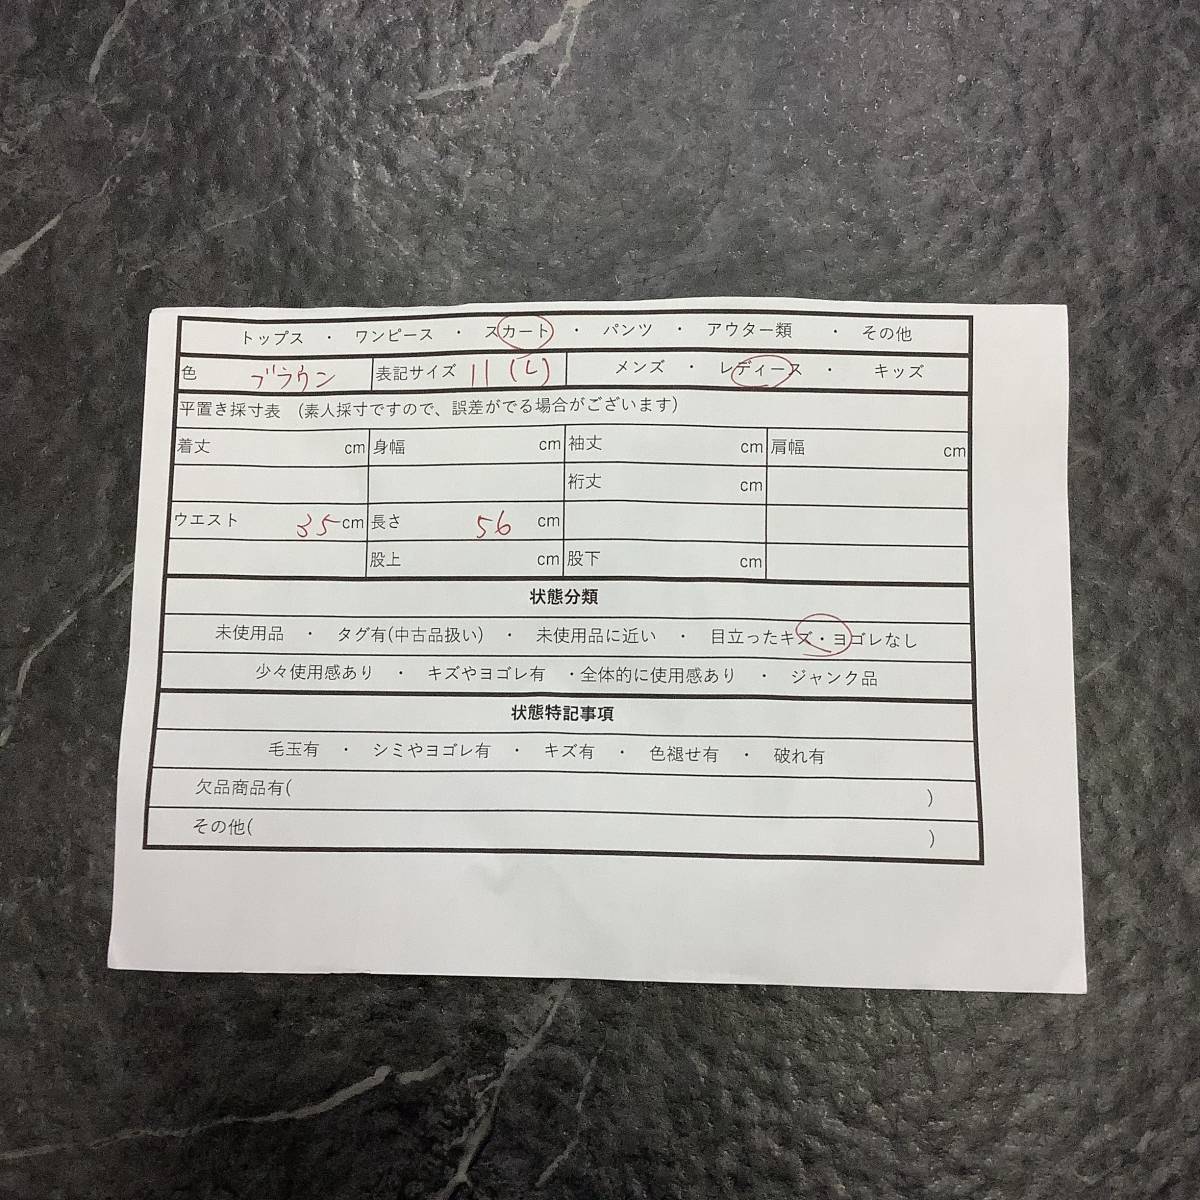 トップス ・ ワンピース ・ スカート ・ パンツ ・ アウター類 ・ その他
色 ブラウン 表記サイズ 11(L) メンズ ・ レディース ・ キッズ
平置き採寸表 (素人採寸ですので、誤差がでる場合がございます)
着丈 cm 身幅 cm 袖丈 cm 肩幅 cm
裄丈 cm
ウエスト 35cm 長さ 56 cm
股上 cm 股下 cm
状態分類
未使用品 ・ タグ有(中古品扱い) ・ 未使用品に近い ・ 目立ったキズ・ヨゴレなし
少々使用感あり ・ キズやヨゴレ有 ・全体的に使用感あり ・ ジャンク品
状態特記事項
毛玉有 ・ シミやヨゴレ有 ・ キズ有 ・ 色褪せ有 ・ 破れ有
欠品商品有( )
その他( )